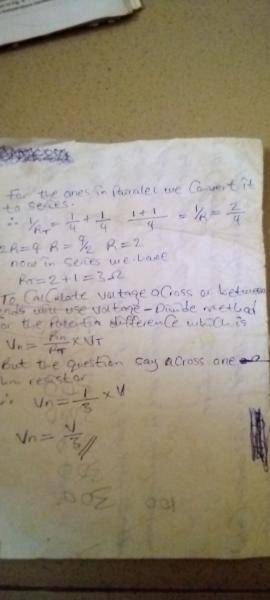 For the ones in Parallel we Convert it
to series.
∴ 1/RT = 1/4 + 1/4 1+1/4 = 1/R = 2/4
2R = 4 R = 4/2 R = 2
now in series we have
RT = 2 + 1 = 3Ω
To Calculate voltage across or between
ends you use voltage - Divide method
or the Potential difference which is
Vn = Rn/RT × VT
But the question say across one
ohm resistor
∴ Vn = 1/3 × V
Vn = V/3 //
300
100